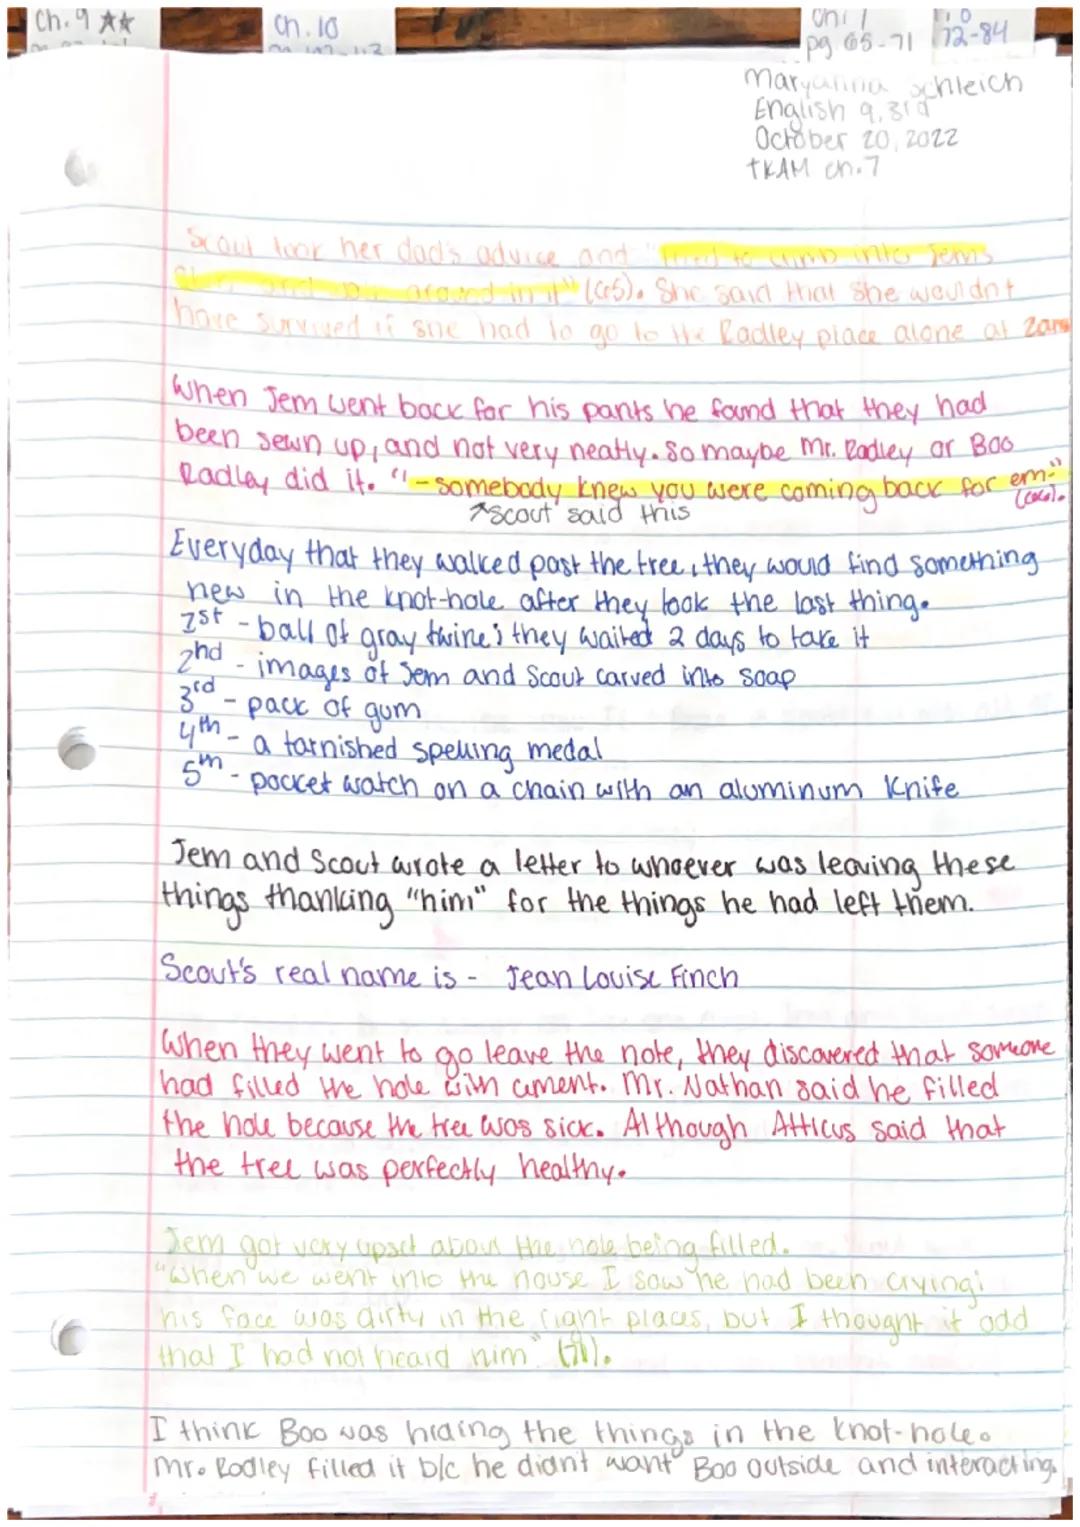 Ch. 9 ☆☆
Ch. 10
pg 65-71
72-84
Maryanna Schleich
English 9, 3rd
October 20, 2022
TKAM ch.7
Scout took her dad's advice and "tried to climb into Jem's
around in it" (65). She said that she wouldn't
have survived if she had to go to the Radley place alone at 2am
When Jem went back for his pants he found that they had
been sewn up, and not very neatly. So maybe Mr. Radley or Boo
Radley did it. "-somebody knew you were coming back for em-"
↗Scout said this
Everyday that they walked past the tree, they would find something
new in the knot-hole after they took the last thing.
1st - ball of gray twine; they waited 2 days to take it
2nd - images of Jem and Scout carved into soap
3rd - pack of gum
4th - a tarnished spelling medal
5th - pocket watch on a chain with an aluminum knife
Jem and Scout wrote a letter to whoever was leaving these
things thanking "him" for the things he had left them.
Scout's real name is - Jean Louise Finch
When they went to go leave the note, they discovered that someone
had filled the hole with cement. Mr. Nathan said he filled
the hole because the tree was sick. Although Atticus said that
the tree was perfectly healthy.
Jem got very upset about the hole being filled.
"When we went into the house I saw he had been crying;
his face was dirty in the right places, but I thought it odd
that I had not heard him" (71).
I think Boo was hiding the things in the knot-hole.
Mr. Radley filled it b/c he didn't want Boo outside and interacting.